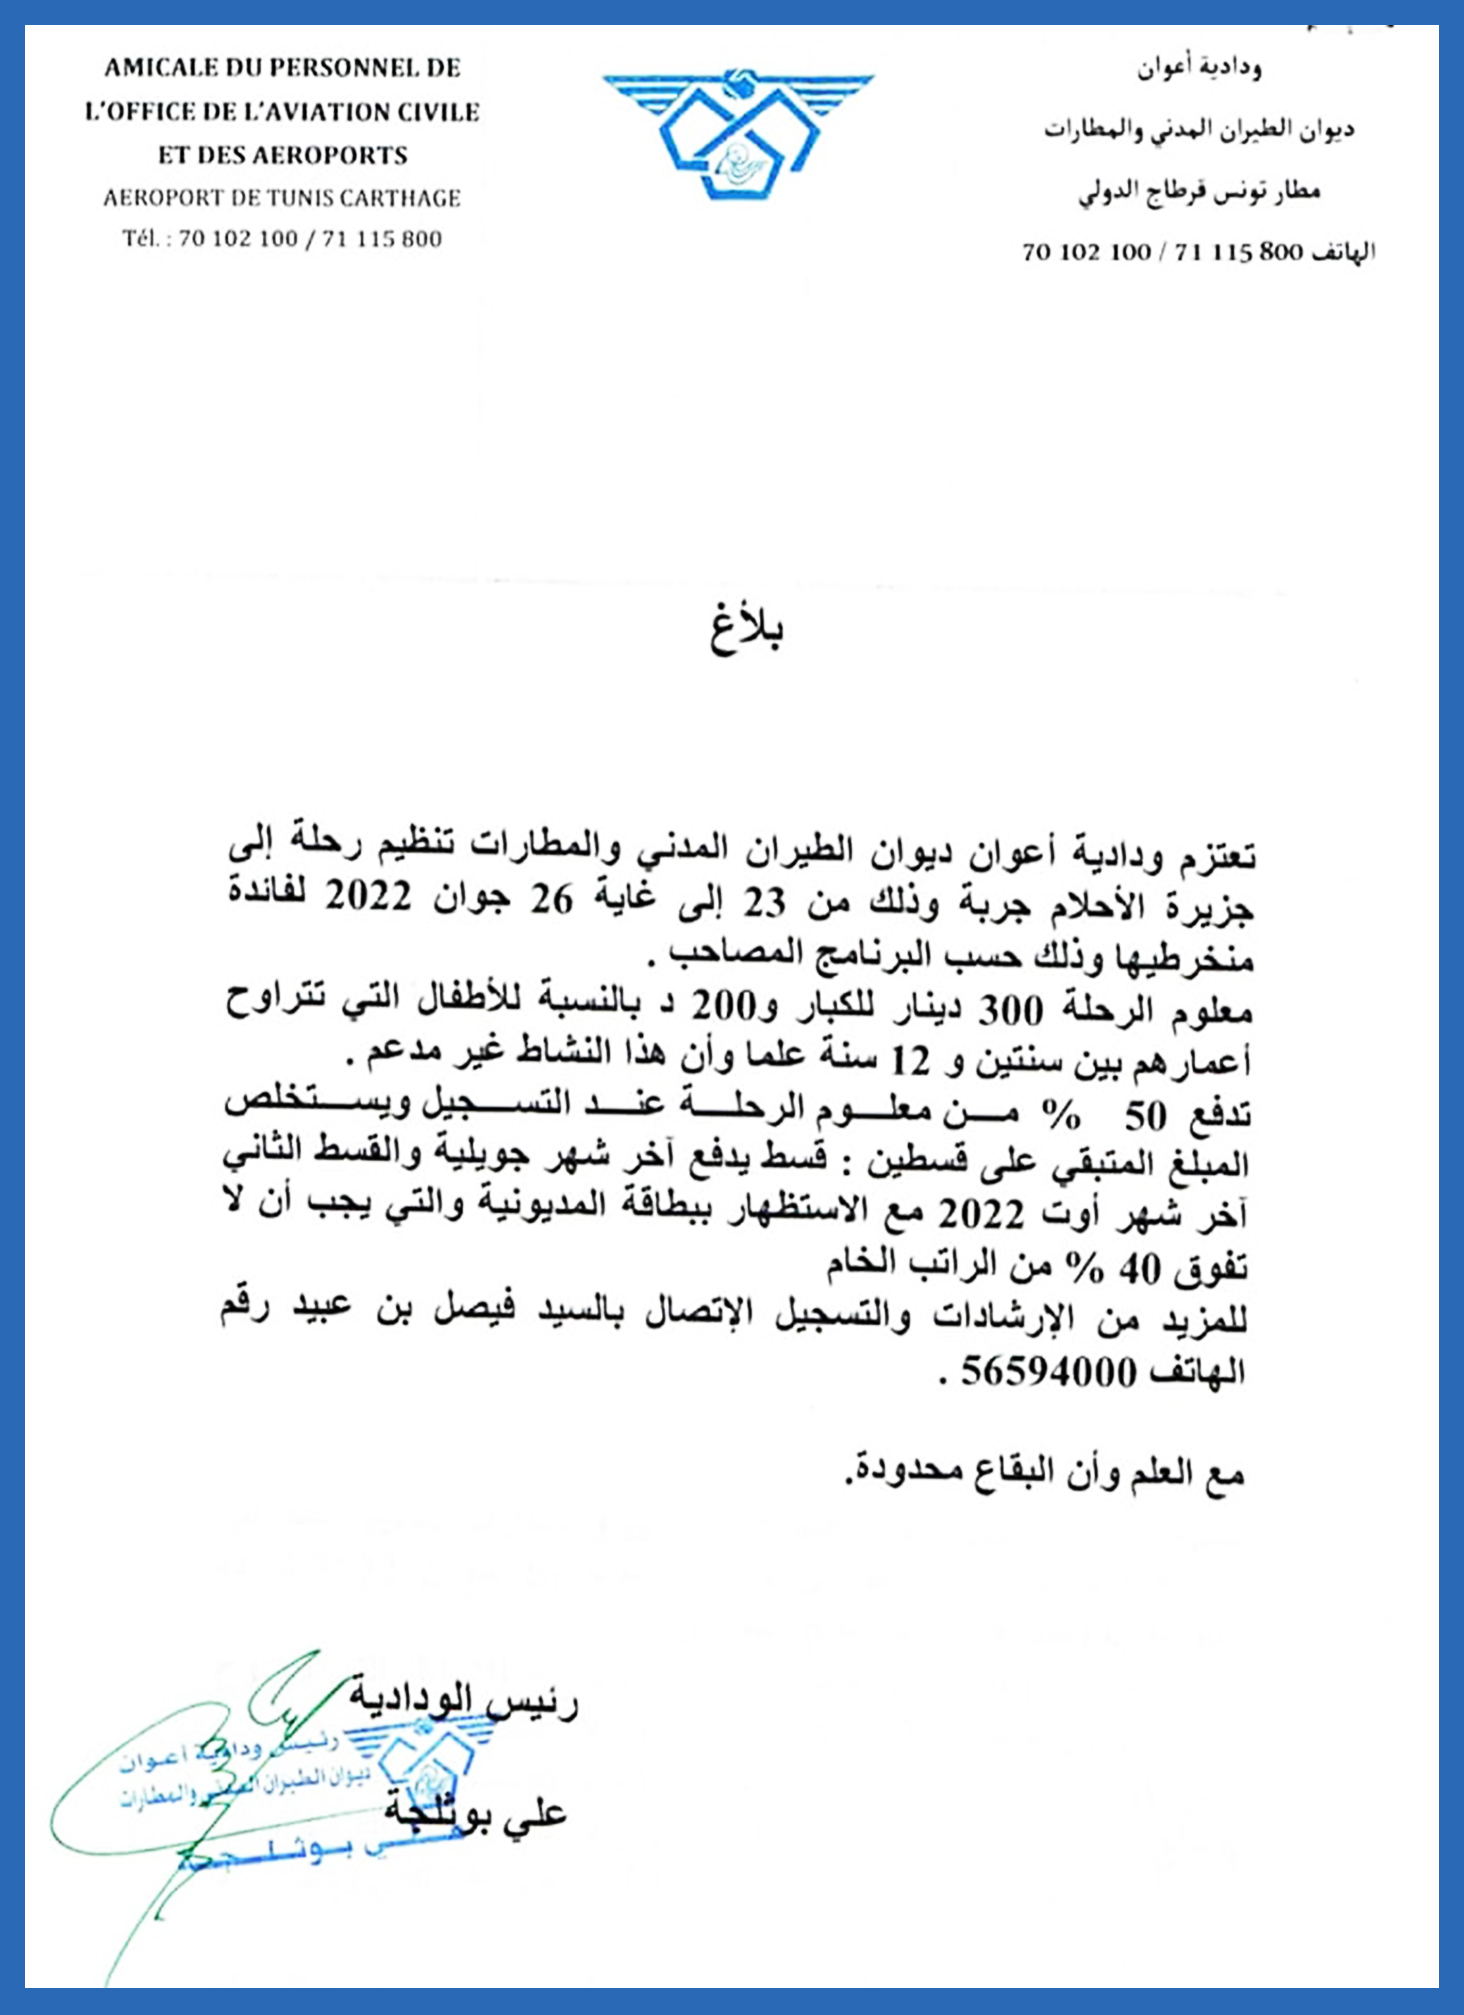 AMICALE DU PERSONNEL DE
L'OFFICE DE L'AVIATION CIVILE
ET DES AEROPORTS
AEROPORT DE TUNIS CARTHAGE
Tél. : 70 102 100 / 71 115 800
ودادية أعوان
ديوان الطيران المدني والمطارات
مطار تونس قرطاج الدولي
الهاتف 70 102 100 / 71 115 800
بلأغ
تعتزم ودادية أعوان ديوان الطيران المدني والمطارات تنظيم رحلة إلى
جزيرة الأحلام جربة وذلك من 23 إلى غاية 26 جوان 2022 لفائدة
منخرطيها وذلك حسب البرنامج المصاحب .
معلوم الرحلة 300 دينار للكبار و200 د بالنسبة للأطفال التي تتراوح
أعمارهم بين سنتين و 12 سنة علما وأن هذا النشاط غير مدعم .
تدفع 50 % من معلوم الرحلة عند التسجيل ويستخلص
المبلغ المتبقي على قسطين : قسط يدفع آخر شهر جويلية والقسط الثاني
آخر شهر أوت 2022 مع الاستظهار ببطاقة المديونية والتي يجب أن لا
تفوق 40 % من الراتب الخام
للمزيد من الإرشادات والتسجيل الإتصال بالسيد فيصل بن عبيد رقم
الهاتف 56594000 .
مع العلم وأن البقاع محدودة.
رئيس الودادية
رئيس ودادية أعوان
ديوان الطيران المدني والمطارات
علي بوثلجة
علي بوثلجة